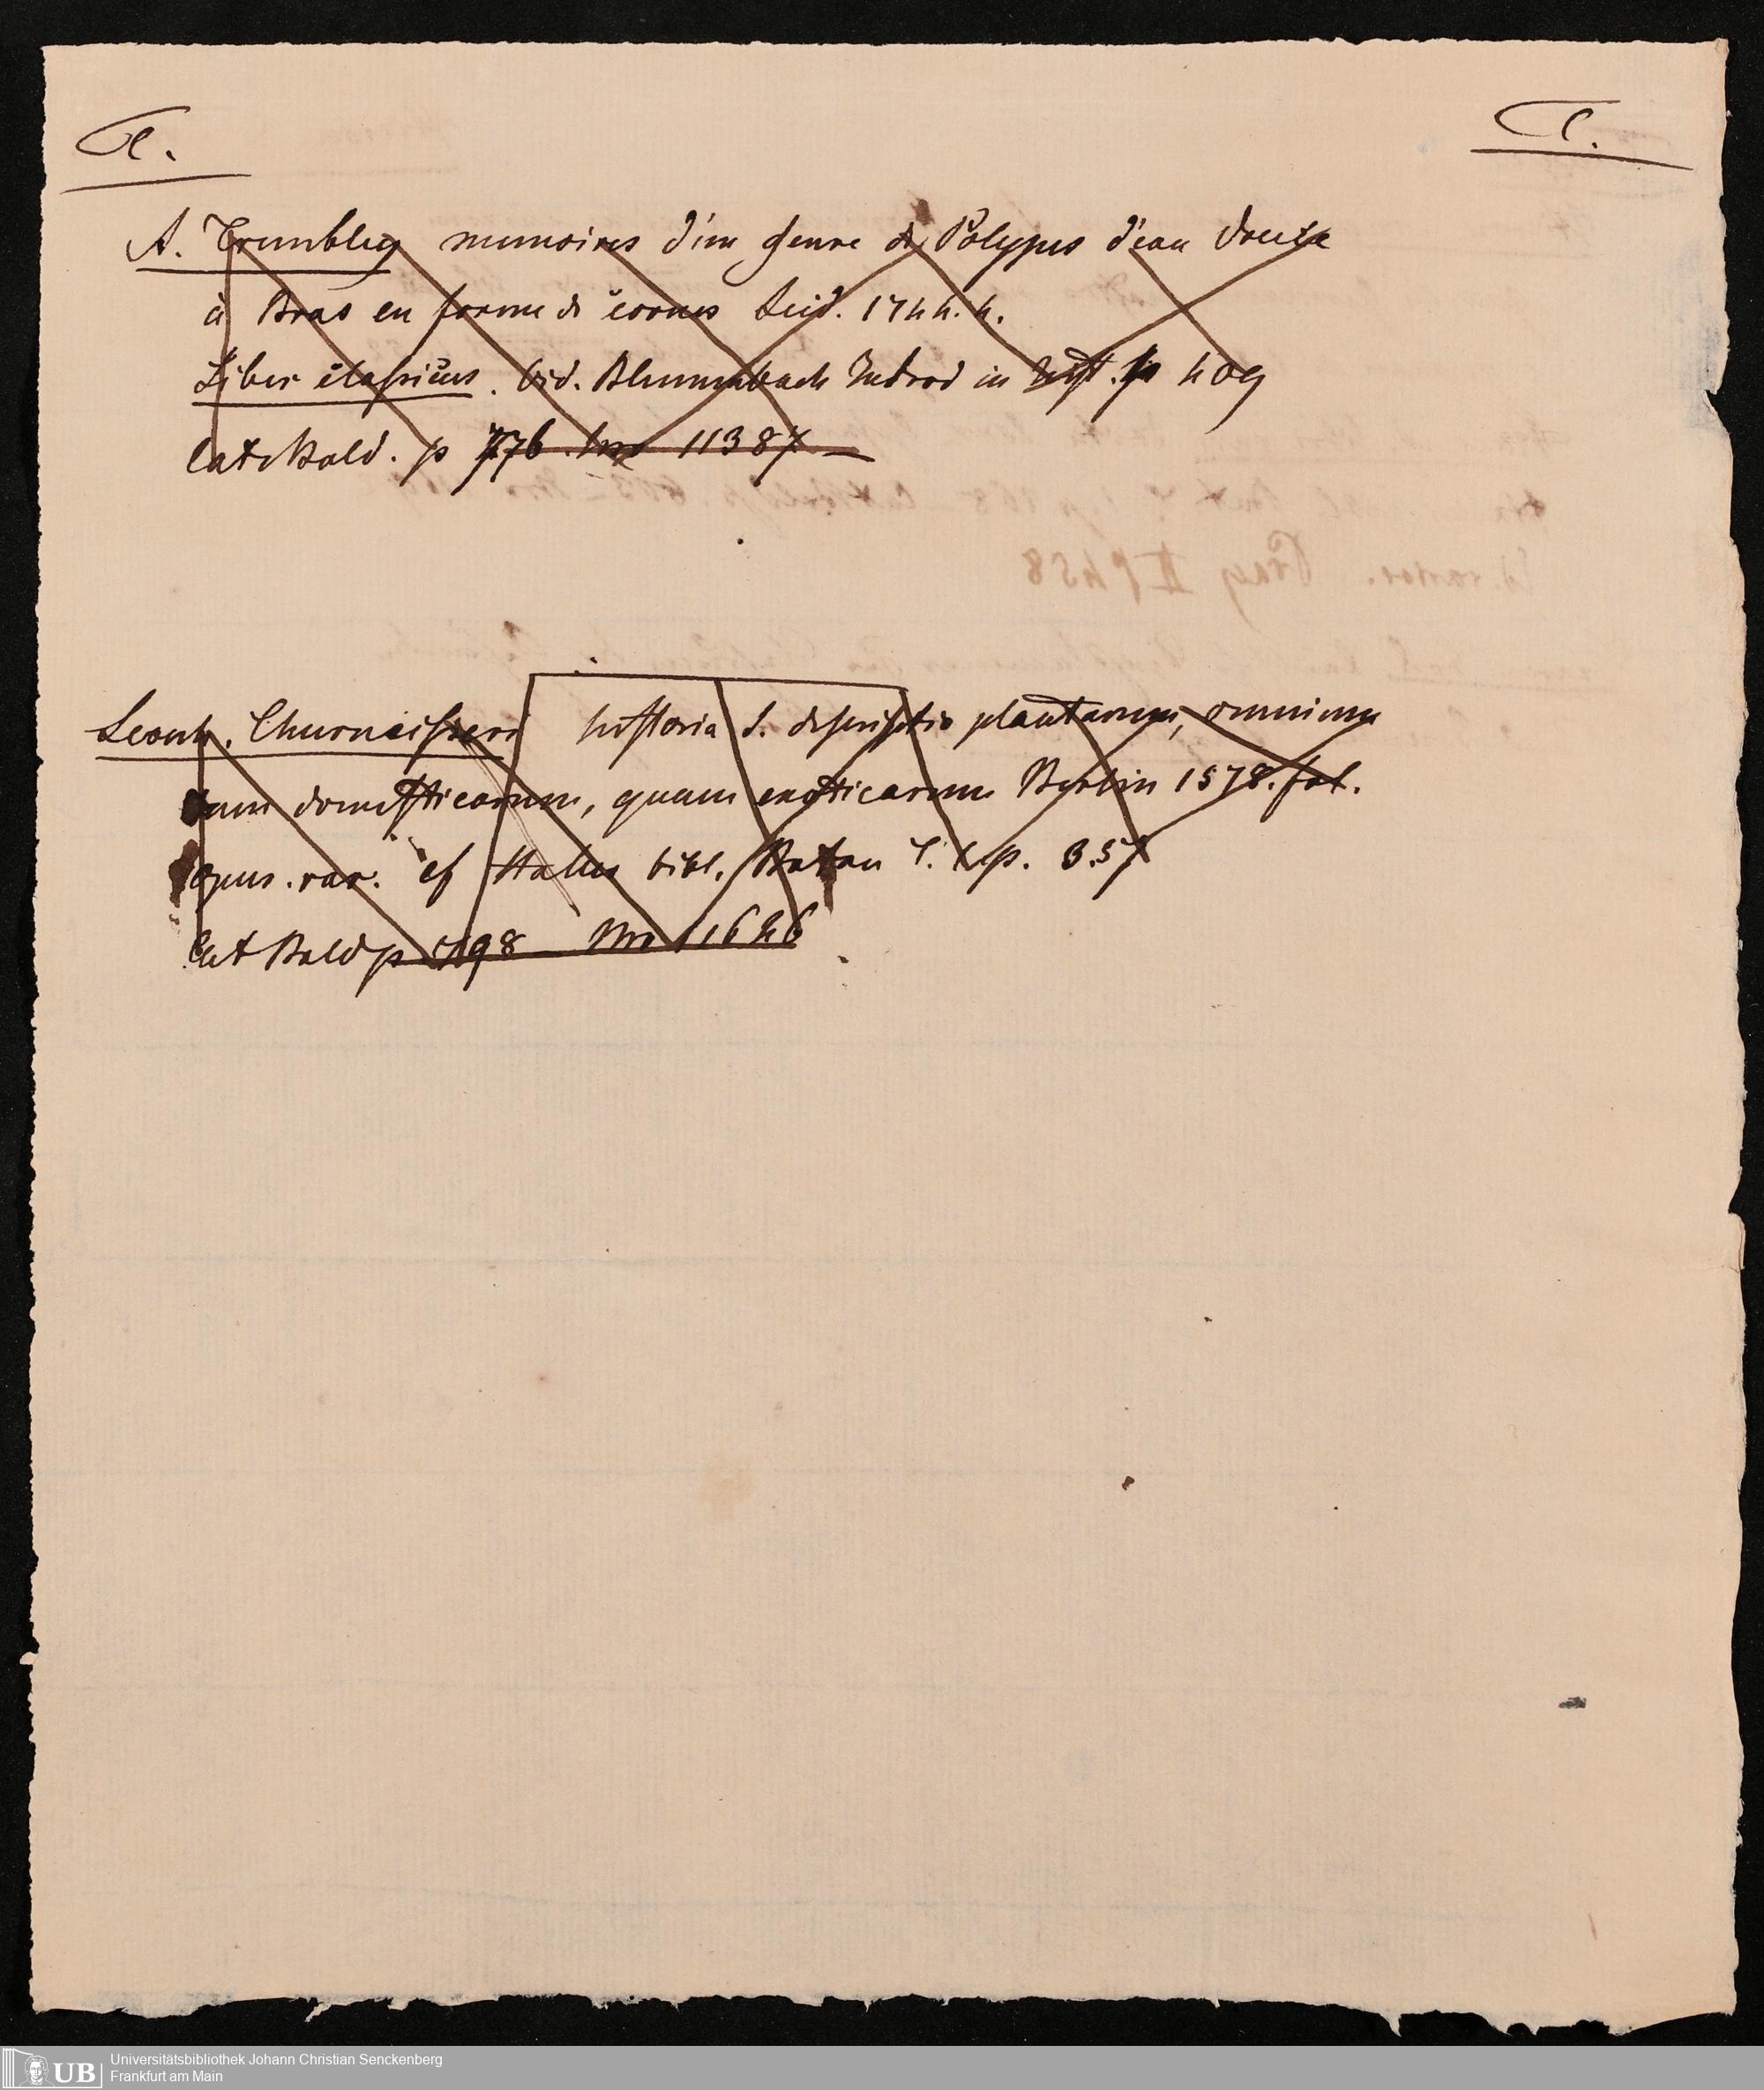 T.
T.
A. Trembley memoires d'un genre de Polypes d'eau douce
à Bras en forme de cornes Leid. 1744. 4.
Liber classicus. vid. Blumenbach Introd in hist. p 409
Cat Bald. p 776. Nro 11387
Leonh. Thurneisseri historia s. descriptio plantarum, omnium
tum domesticarum, quam exoticarum Berlin 1578. fol.
opus. rar. cf Haller bibl. Botan T. I. p. 357
Cat Bald p 798 Nro 11646
Universitätsbibliothek Johann Christian Senckenberg
Frankfurt am Main
UB